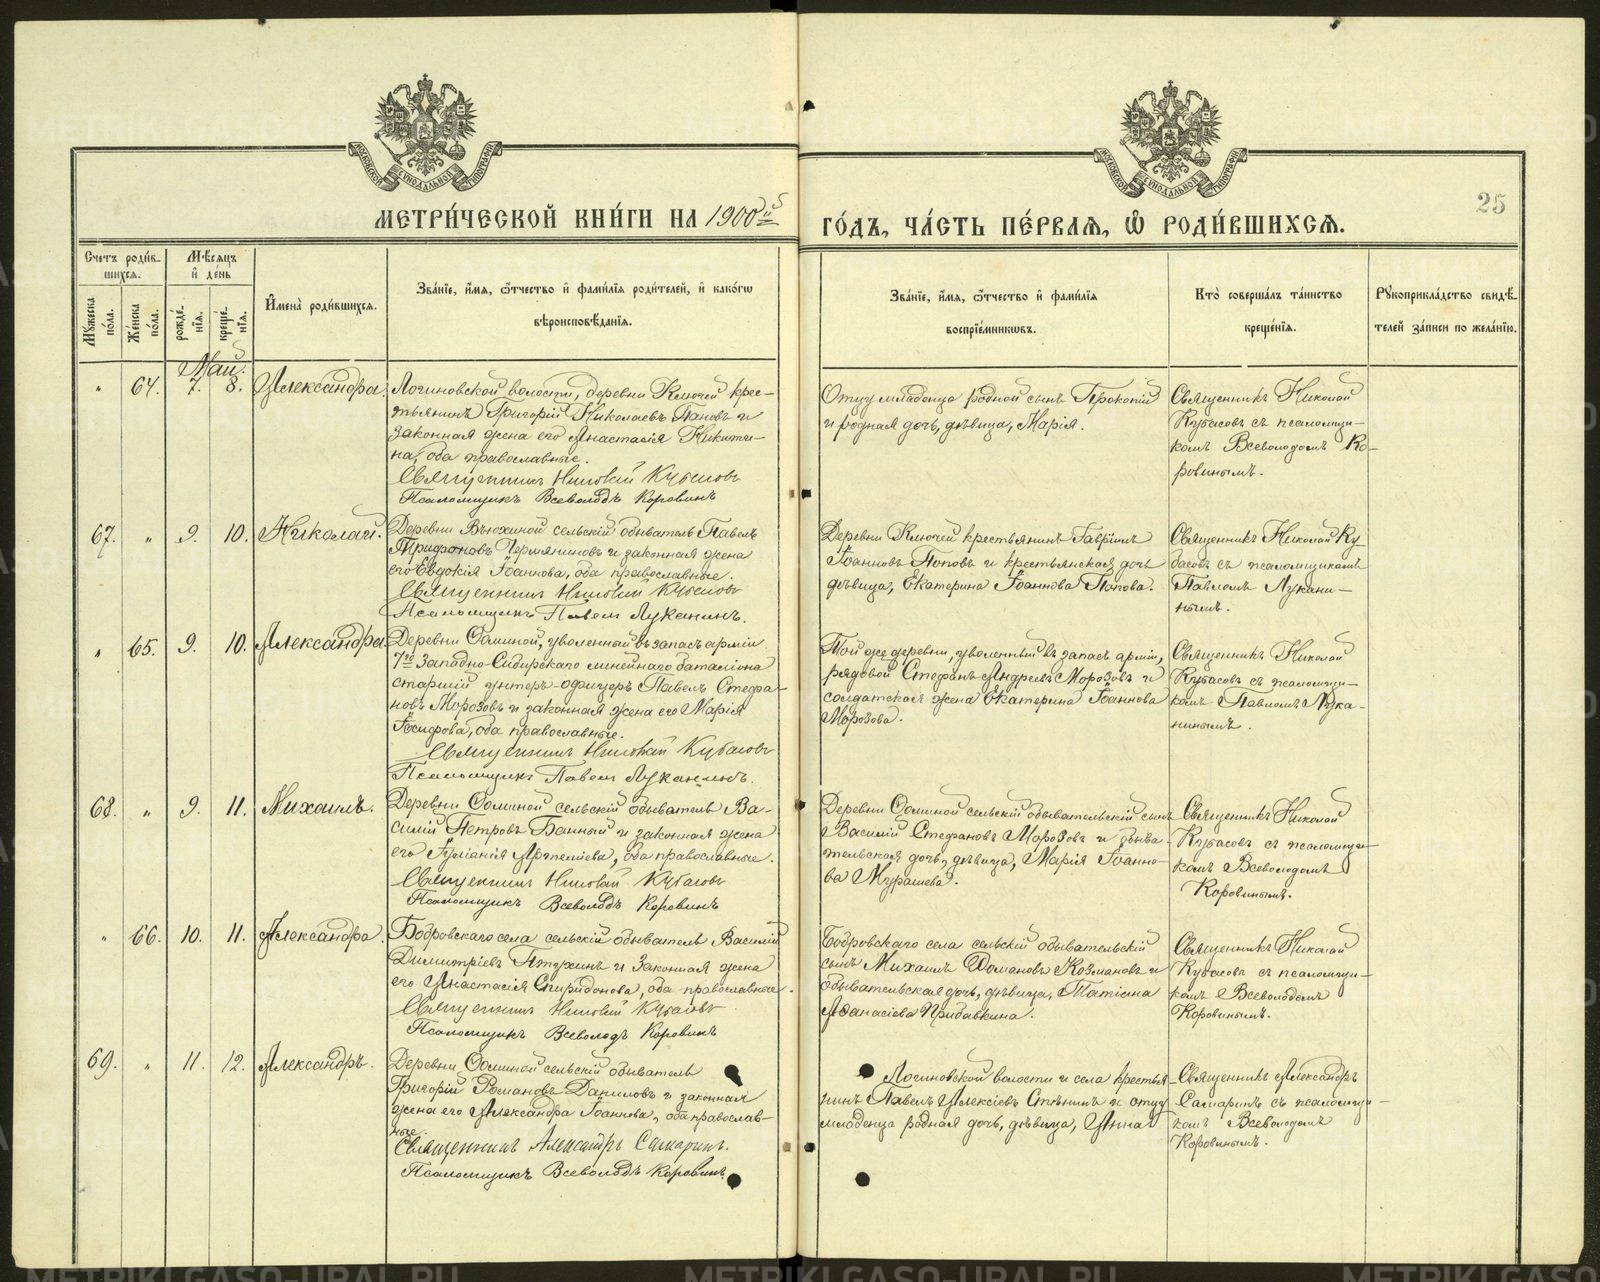 МЕТРИ́ЧЕСКОЙ КНИ́ГИ НА 1900й
ГО́ДЪ, ЧА́СТЬ ПЕ́РВАѦ, Ѡ҆ РОДИ́ВШИХСѦ.
25
МОСКОВСКОЙ СѴНОДАЛЬНОЙ ТИПОГРАФІИ
МОСКОВСКОЙ СѴНОДАЛЬНОЙ ТИПОГРАФІИ
Счетъ роди́вшихсѧ.
Мꙋ́жеска по́ла.
Же́нска по́ла.
Мѣ́сѧцъ и҆ де́нь
рожде́нїѧ.
креще́нїѧ.
И҆мена̀ роди́вшихсѧ.
Зва́нїе, и҆́мѧ, ѻ҆́тчество и҆ фами́лїѧ роди́телей, и҆ како́гѡ
вѣроисповѣ́данїѧ.
Зва́нїе, и҆́мѧ, ѻ҆́тчество и҆ фами́лїѧ
воспрїе́мникѡвъ.
Кто̀ соверша́лъ та́инство
креще́нїѧ.
Рꙋкоприкла́дство свидѣ́телей за́писи по жела́нїю.
Май.
" 64. 7. 8. Александра.
Логиновской волости, деревни Ключей крес-
тьянинъ Григорій Николаевъ Пановъ и
законная жена его Анастасія Никити-
на, оба православные.
Священникъ Николай Кубасовъ
Псаломщикъ Всеволодъ Коровинъ
Отцу младенца родной сынъ Прокопій
и родная дочь, дѣвица, Марія.
Священникъ Николай
Кубасовъ съ псаломщи-
комъ Всеволодомъ Ко-
ровинымъ.
67. " 9. 10. Николай.
Деревни Вьюхиной сельскій обыватель Павелъ
Трифоновъ Пермяниновъ и законная жена
его Евдокія Іоаннова, оба православные.
Священникъ Николай Кубасовъ
Псаломщикъ Павелъ Луканинъ.
Деревни Ключей крестьянинъ Гавріилъ
Іоанновъ Поповъ и крестьянская дочь
дѣвица, Екатерина Іоаннова Попова.
Священникъ Николай Ку-
басовъ съ псаломщикомъ
Павломъ Лукани-
нымъ.
" 65. 9. 10. Александра.
Деревни Ѳоминой, уволенный въ запасъ арміи
7го Западно-Сибирскаго линейнаго баталіона
старшій унтеръ-офицеръ Павелъ Стефа-
новъ Морозовъ и законная жена его Марія
Іосифова, оба православные.
Священникъ Николай Кубасовъ
Псаломщикъ Павелъ Луканинъ.
Той же деревни, уволенный въ запасъ арміи,
рядовой Стефанъ Андреевъ Морозовъ и
солдатская жена Екатерина Іоаннова
Морозова.
Священникъ Николай
Кубасовъ съ псаломщи-
комъ Павломъ Лука-
нинымъ.
68. " 9. 11. Михаилъ.
Деревни Ѳоминой сельскій обыватель Ва-
силій Петровъ Банный и законная жена
его Іуліанія Артеміева, оба православные.
Священникъ Николай Кубасовъ
Псаломщикъ Всеволодъ Коровинъ
Деревни Ѳоминой сельскій обывательскій сынъ
Василій Стефановъ Морозовъ и обыва-
тельская дочь, дѣвица, Марія Іоанно-
ва Мурашева.
Священникъ Николай
Кубасовъ съ псаломщи-
комъ Всеволодомъ
Коровинымъ.
" 66. 10. 11. Александра.
Бобровскаго села сельскій обыватель Василій
Димитріевъ Птухинъ и законная жена
его Анастасія Спиридонова, оба православные.
Священникъ Николай Кубасовъ
Псаломщикъ Всеволодъ Коровинъ
Бобровскаго села сельскій обывательскій
сынъ Михаилъ Домановъ Козмановъ и
обывательская дочь, дѣвица, Татіана
Аѳанасіева Прибавкина.
Священникъ Николай
Кубасовъ съ псаломщи-
комъ Всеволодомъ
Коровинымъ.
69. " 11. 12. Александръ.
Деревни Ѳоминой сельскій обыватель
Григорій Романовъ Даниловъ и законная
жена его Александра Іоаннова, оба православ-
ные.
Священникъ Александръ Самаринъ.
Псаломщикъ Всеволодъ Коровинъ.
Логиновской волости и села крестья-
нинъ Павелъ Алексіевъ Стѣнинъ и отцу
младенца родная дочь, дѣвица, Анна
Священникъ Александръ
Самаринъ съ псаломщи-
комъ Всеволодомъ
Коровинымъ.
METRIKI.GASO-URAL.RU